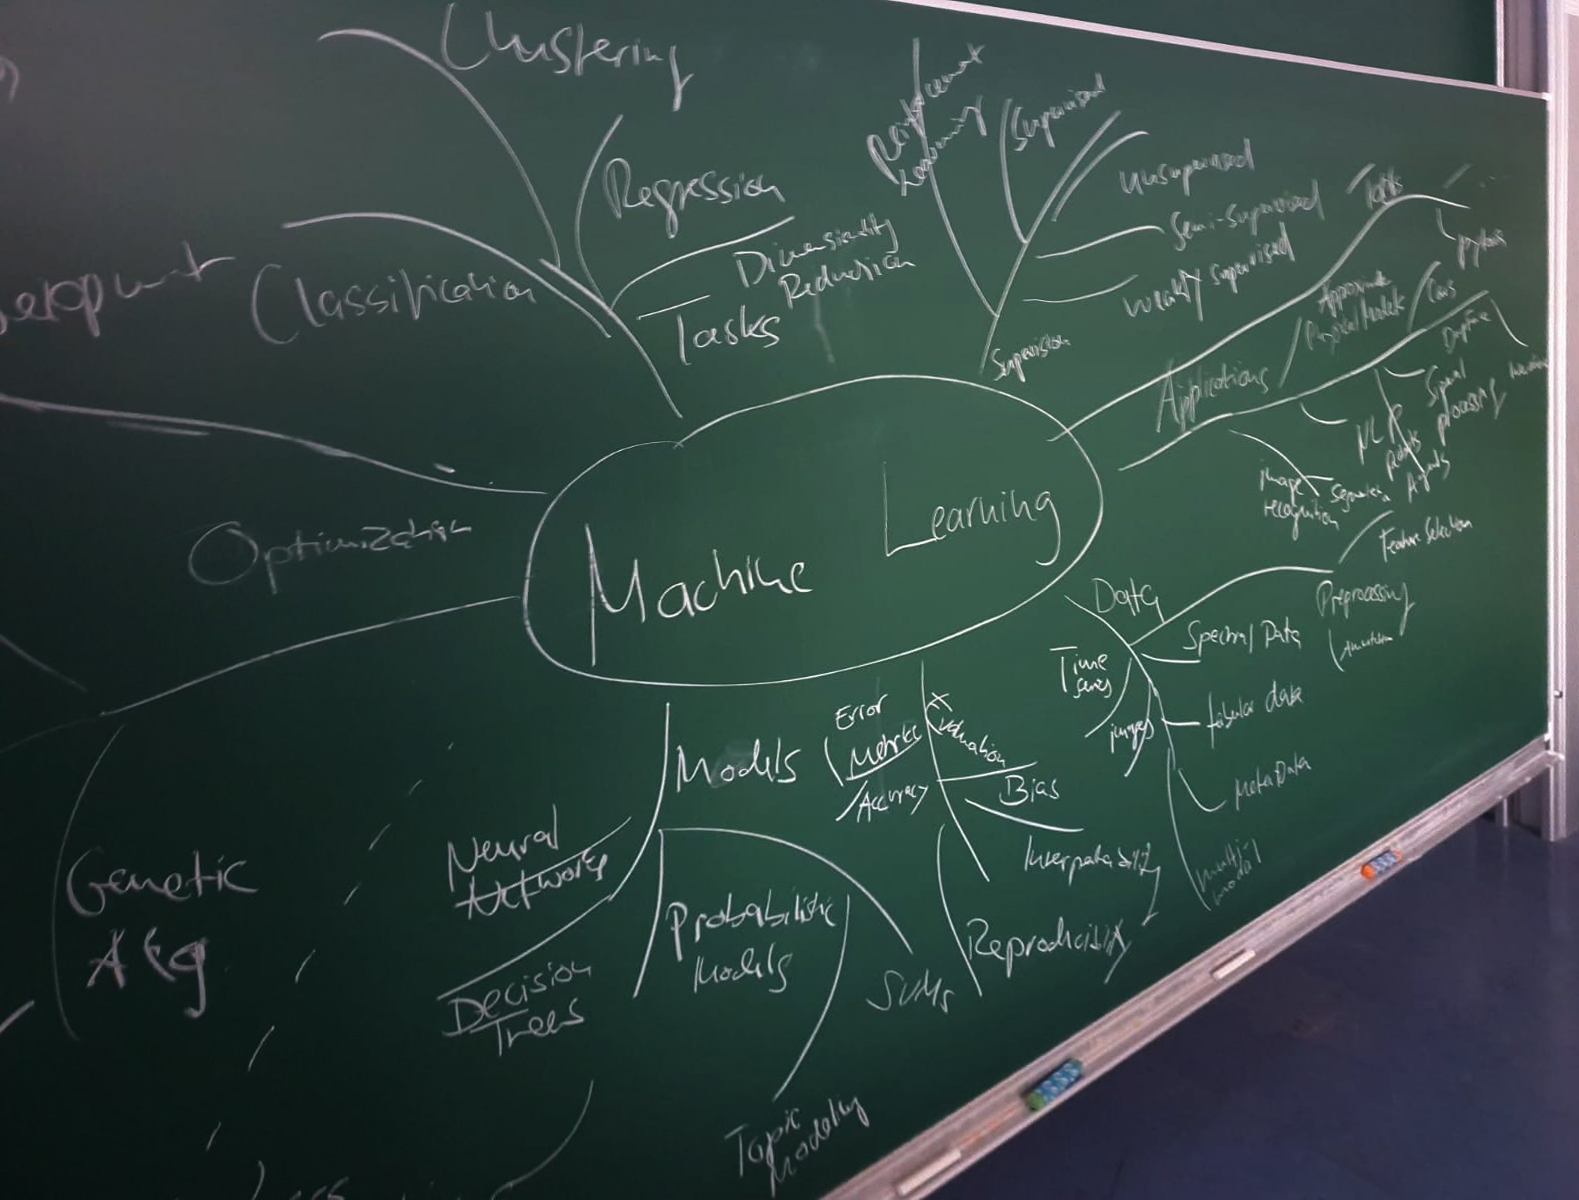 Clustering
Regression
Dimensionality
Reduction
Tasks
Classification
Reinforcement
Learning
Supervised
Unsupervised
Semi-supervised
Weakly supervised
Supervision
Tools
Applications
Approximate
Physical Models
NLP
Signal
processing
Robots
Agents
image
recognition
Machine Learning
Optimization
Data
Feature Selection
Preprocessing
Spectral Data
Time
series
images
tabular data
MetaData
multi-
modal
Models
Neural
Networks
Decision
Trees
Probabilistic
Models
SVMs
Topic
Modeling
Error
Metrics
Accuracy
Evaluation
Bias
Interpretability
Reproducibility
Genetic
Alg